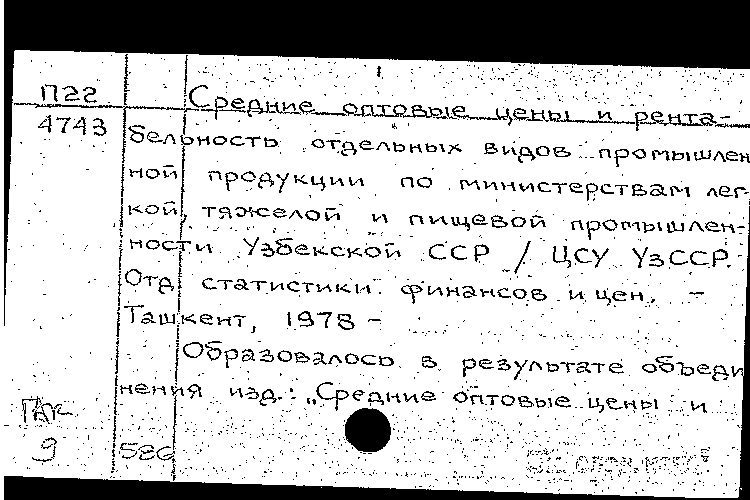 П22
4743
Средние оптовые цены и рента-
бельность отдельных видов промышлен
ной продукции по министерствам лег-
кой, тяжелой и пищевой промышлен-
ности Узбекской ССР / ЦСУ УзССР.
Отд статистики финансов и цен. -
Ташкент, 1978 -
Образовалось в результате объеди
нения изд.: „Средние оптовые цены и
ГАК
9
586